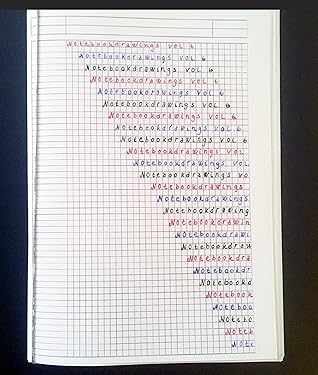 Notebookdrawings VOL 6
Notebookdrawings VOL 6
Notebookdrawings VOL 6
Notebookdrawings VOL 6
Notebookdrawings VOL 6
Notebookdrawings VOL 6
Notebookdrawings VOL 6
Notebookdrawings VOL 6
Notebookdrawings VOL 6
Notebookdrawings VOL
Notebookdrawings VOL
Notebookdrawings VO
Notebookdrawings
Notebookdrawings
Notebookdrawing
Notebookdrawin
Notebookdrawi
Notebookdraw
Notebookdra
Notebookdr
Notebookd
Notebook
Noteboo
Notebo
Noteb
Note